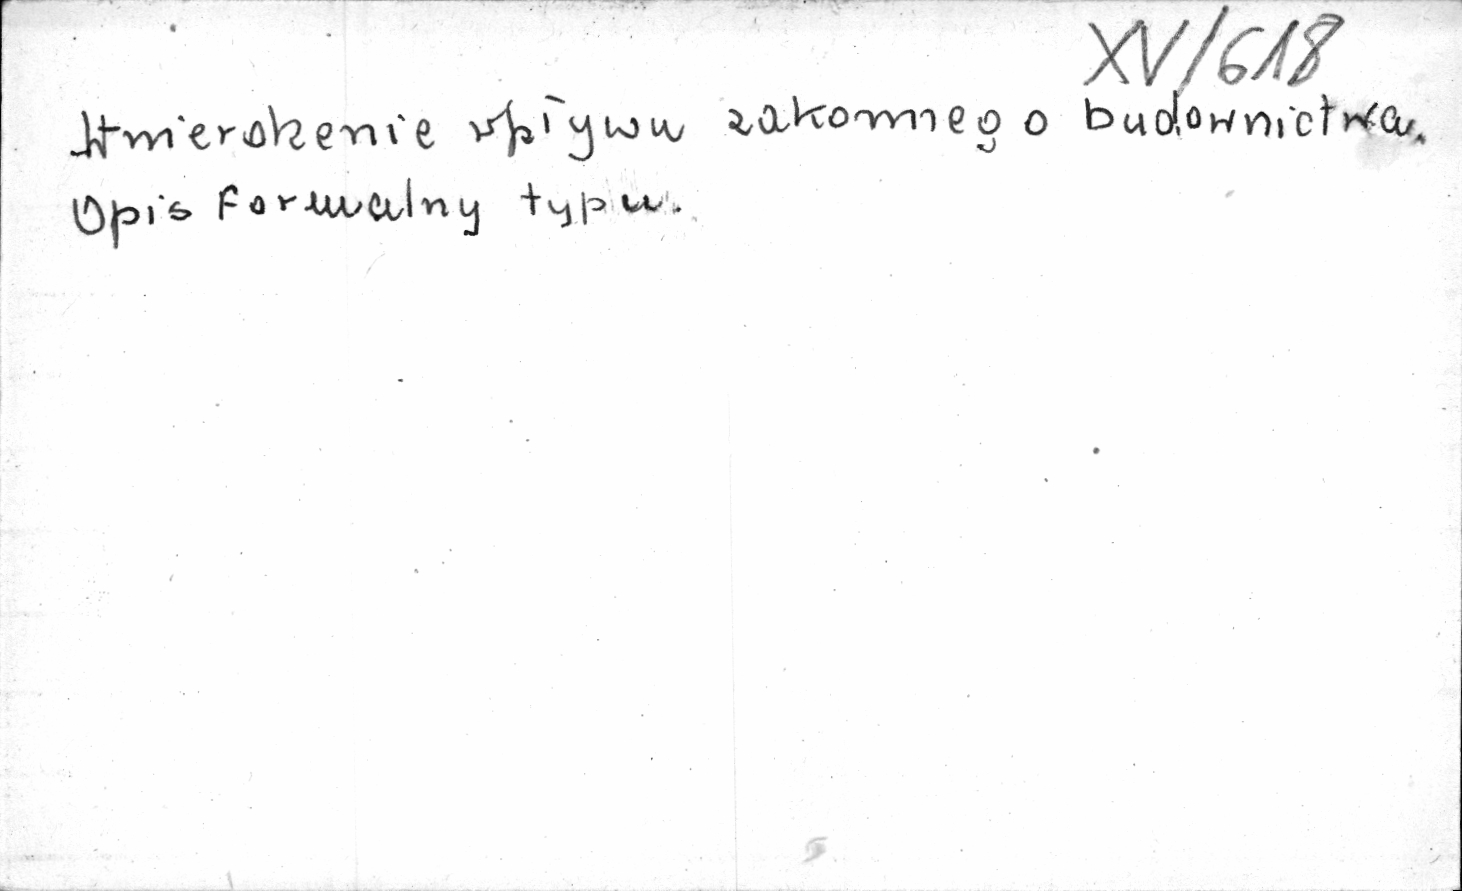 XV/618
Stwierdzenie wpływu zakonnego budownictwa.
Opis formalny typu.